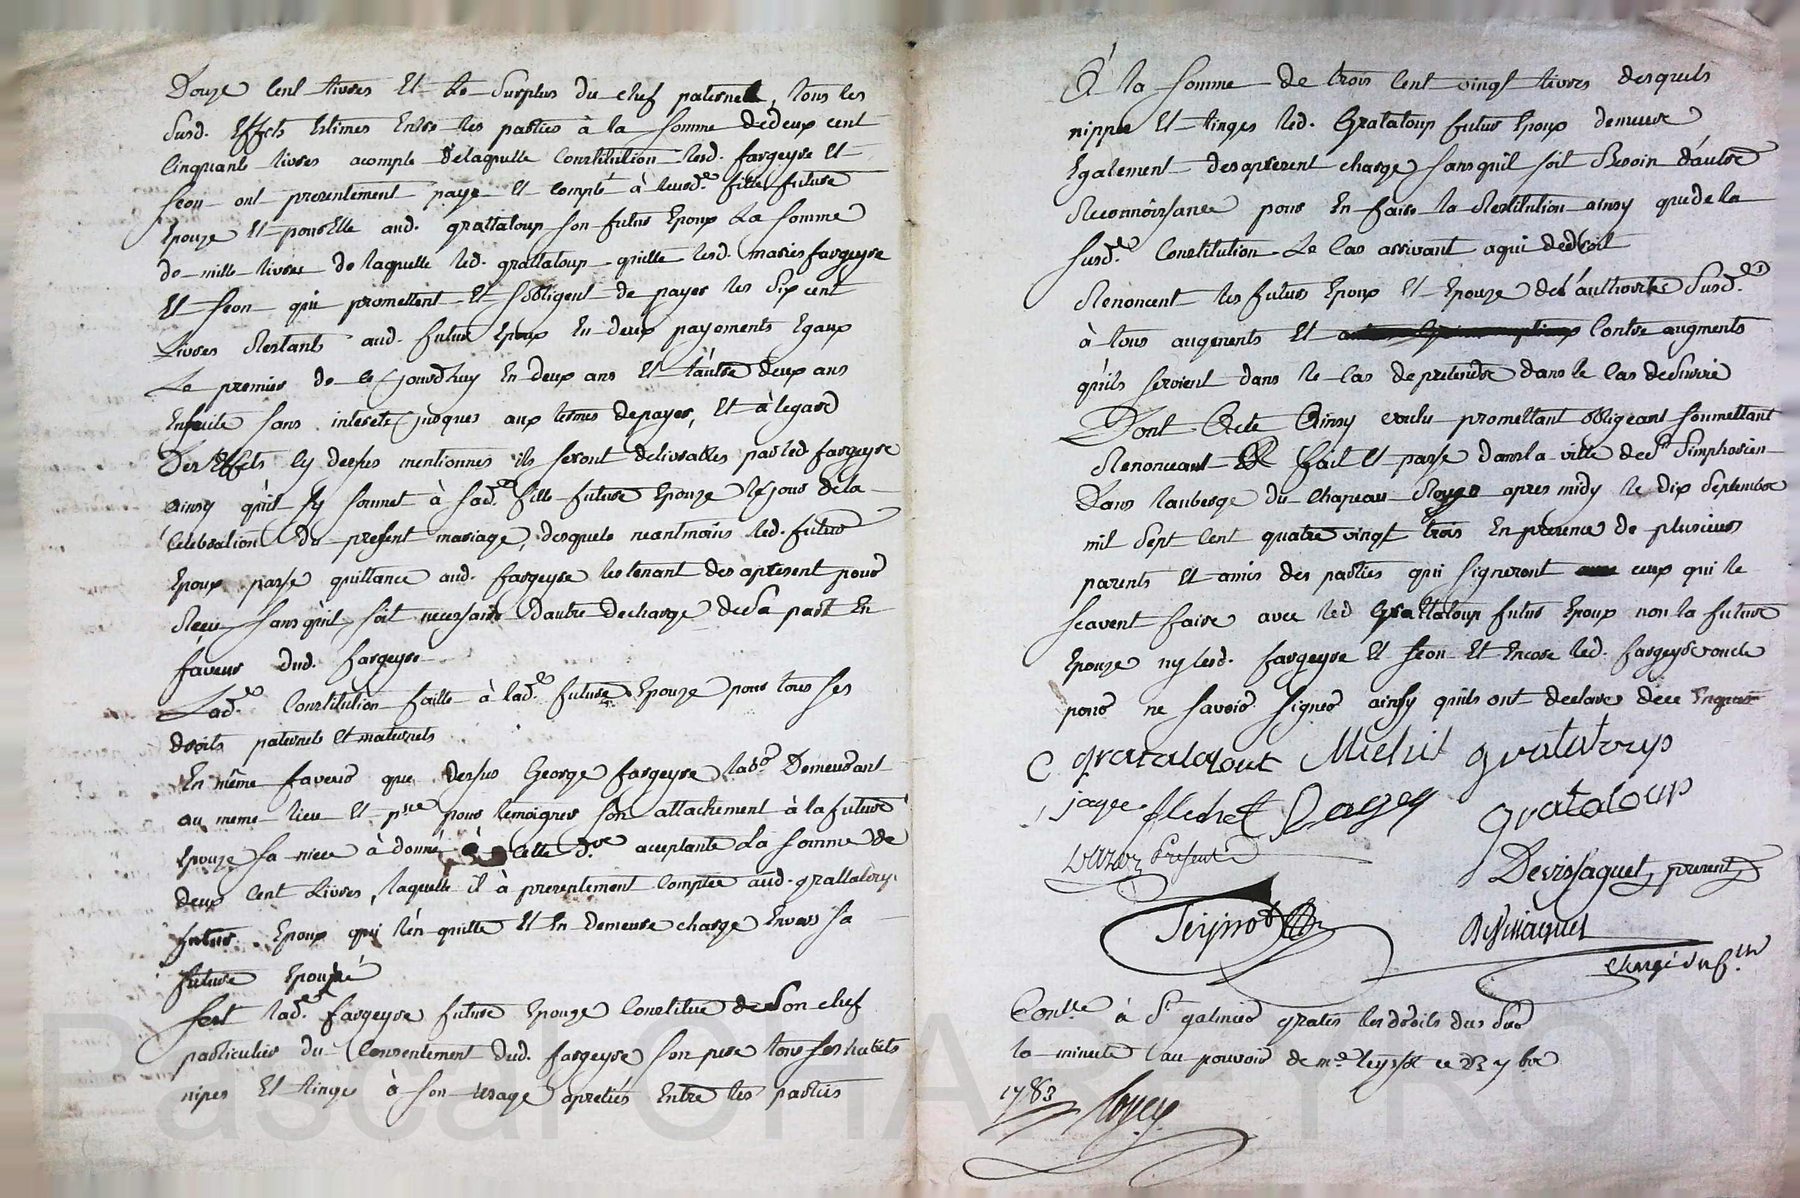 Douze Cent livres Et Le Surplus du chef paternel, tous les
susd. Effets Estimes Entre les parties à la somme de deux cent
Cinquante livres acompte de laquelle Constitution lesd. fargeyre Et
feon ont presentement payé Et compté à leurd.e fille future
Epouze Et pour Elle aud. grattaloup son futur Epoux La somme
de mille livres de laquelle led. grattaloup quitte lesd. maries fargeyre
Et feon qui promettent Et s'obligent de payer les Six cent
Livres Restants aud. futur Epoux En deux payements Egaux
Le premier de ce jourdhuy En deux ans Et l'autre deux ans
Ensuite sans interets jusques aux termes de payer, Et à legard
Des Effets cy dessus mentionnes ils seront delivrables par led. fargeyre
ainsy qu'il sy soumet à sad.e fille future Epouze le jour de la
Celebration du present mariage, desquels neantmoins led. futur
Epoux passe quittance aud. fargeyre les tenant des apresent pour
Receu sans qu'il soit necessaire d'autre decharge de Sa part En
faveur dud. fargeyre
Lad.e Constitution faitte à lad.e future Epouze pour tous ses
droits paternels et maternels
En même faveur que dessus George fargeyre lab.r Demeurant
au meme lieu Et p.sse pour temoigner son attachement à la future
Epouze sa niece à donné à cette d.re acceptante La somme de
deux Cent Livres, laquelle il à presentement Comptée aud. grattaloup
futur Epoux qui l'en quitte Et En Demeure chargé Envers Sa
future Epouze
sest lad.e fargeyre future Epouze Constitué de Son chef
particulier du Consentement dud. fargeyre son pere tous ses habits
nipes Et linges à son usage apretiés Entre les parties
à la somme de trois Cent vingt livres desquels
nippes Et linges led. Grataloup futur Epoux demeure
Egalement des apresent chargé sans quil soit Besoin d'autre
Reconnoissance pour En faire la Restitution ainsy que de la
susd.e Constitution Le Cas arrivant a qui de droit
Renoncent les futurs Epoux Et Epouze de l'authorité Susd.e
à tous augments Et Contre augments
qu'ils seroient dans le cas de pretendre dans le Cas de Survie
Dont Acte Ainsy voulu promettant obligeant soumettant
Renonceant Fait Et passé dans la ville de S.t Simphorien
Dans lauberge du Chapeau Rouge apres midy le dix Septembre
mil Sept Cent quatre vingt trois En presence de plusieurs
parents Et amis des parties qui signeront ceux qui le
scavent faire avec led Grattaloup futur Epoux non la future
Epouze ny lesd. fargeyre Et feon Et Encore led. fargeyre oncle
pour ne savoir signer ainsy quils ont declaré de ce Enquis
C gratalout Michel grataloup
jayee flechet Ragey grataloup
present Devissaguet present
Teyssot Devissaguet
Con.lle à S.t galmier gratis les droits dus Sur
la minute au pouvoir de m.e teyssot ce 23 7bre
1783